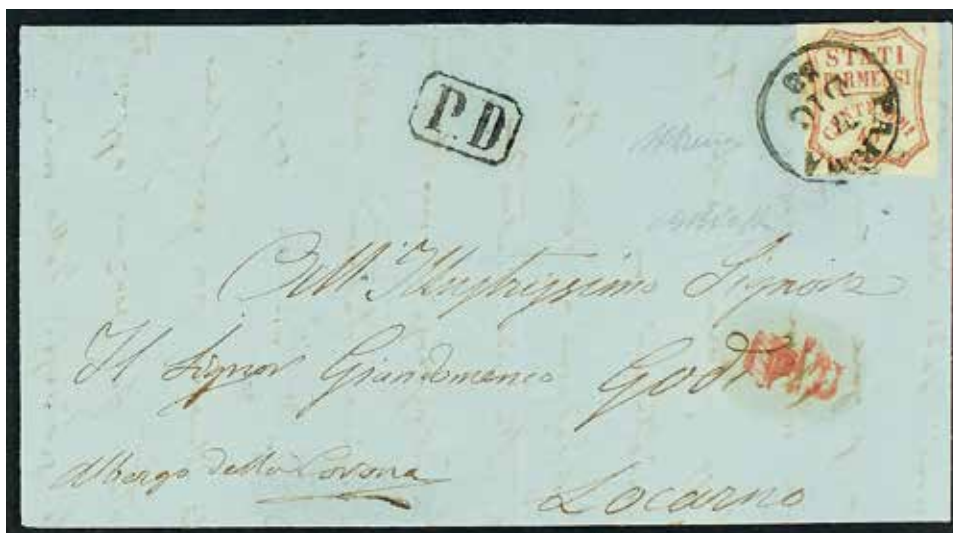 P.D
STATI
PARMENSI
CENTESIMI
PARMA
DIC
59
All' Illustrissimo Signore
Il Signor Giandomenico Godi
Albergo della Corona
Locarno